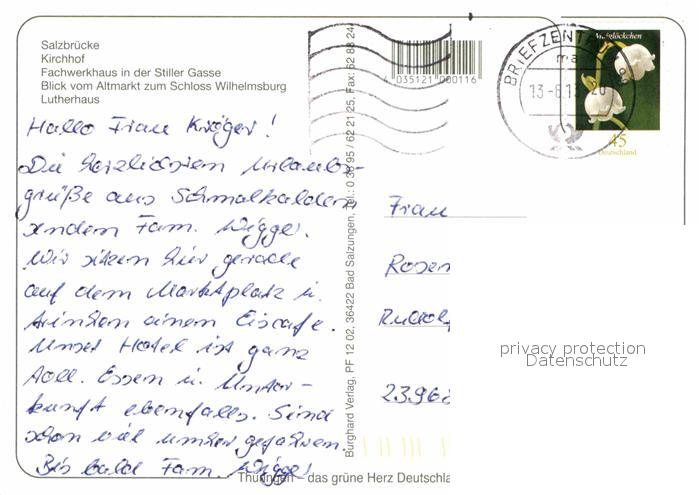 Salzbrücke
Kirchhof
Fachwerkhaus in der Stiller Gasse
Blick vom Altmarkt zum Schloss Wilhelmsburg
Lutherhaus
Hallo Frau Kröger!
Die herzlichsten Urlaubs-
grüße aus Schmalkalden
senden Fam. Wigger.
Wir sitzen hier gerade
auf dem Marktplatz u.
trinken einen Eiscafe.
Unser Hotel ist ganz
toll. Essen u. Unter-
kunft ebenfalls. Sind
schon viel umher gefahren.
Bis bald Fam. Wigger
Burghard Verlag, PF 12 02, 36422 Bad Salzungen, Tel.: 0 36 95 / 62 21 25, Fax: 62 88 24
4 035121 000116
BRIEFZENTRUM
Maiglöckchen
45
Deutschland
Frau
Rosen
Rudolf
2396
privacy protection
Datenschutz
Thüringen - das grüne Herz Deutschla